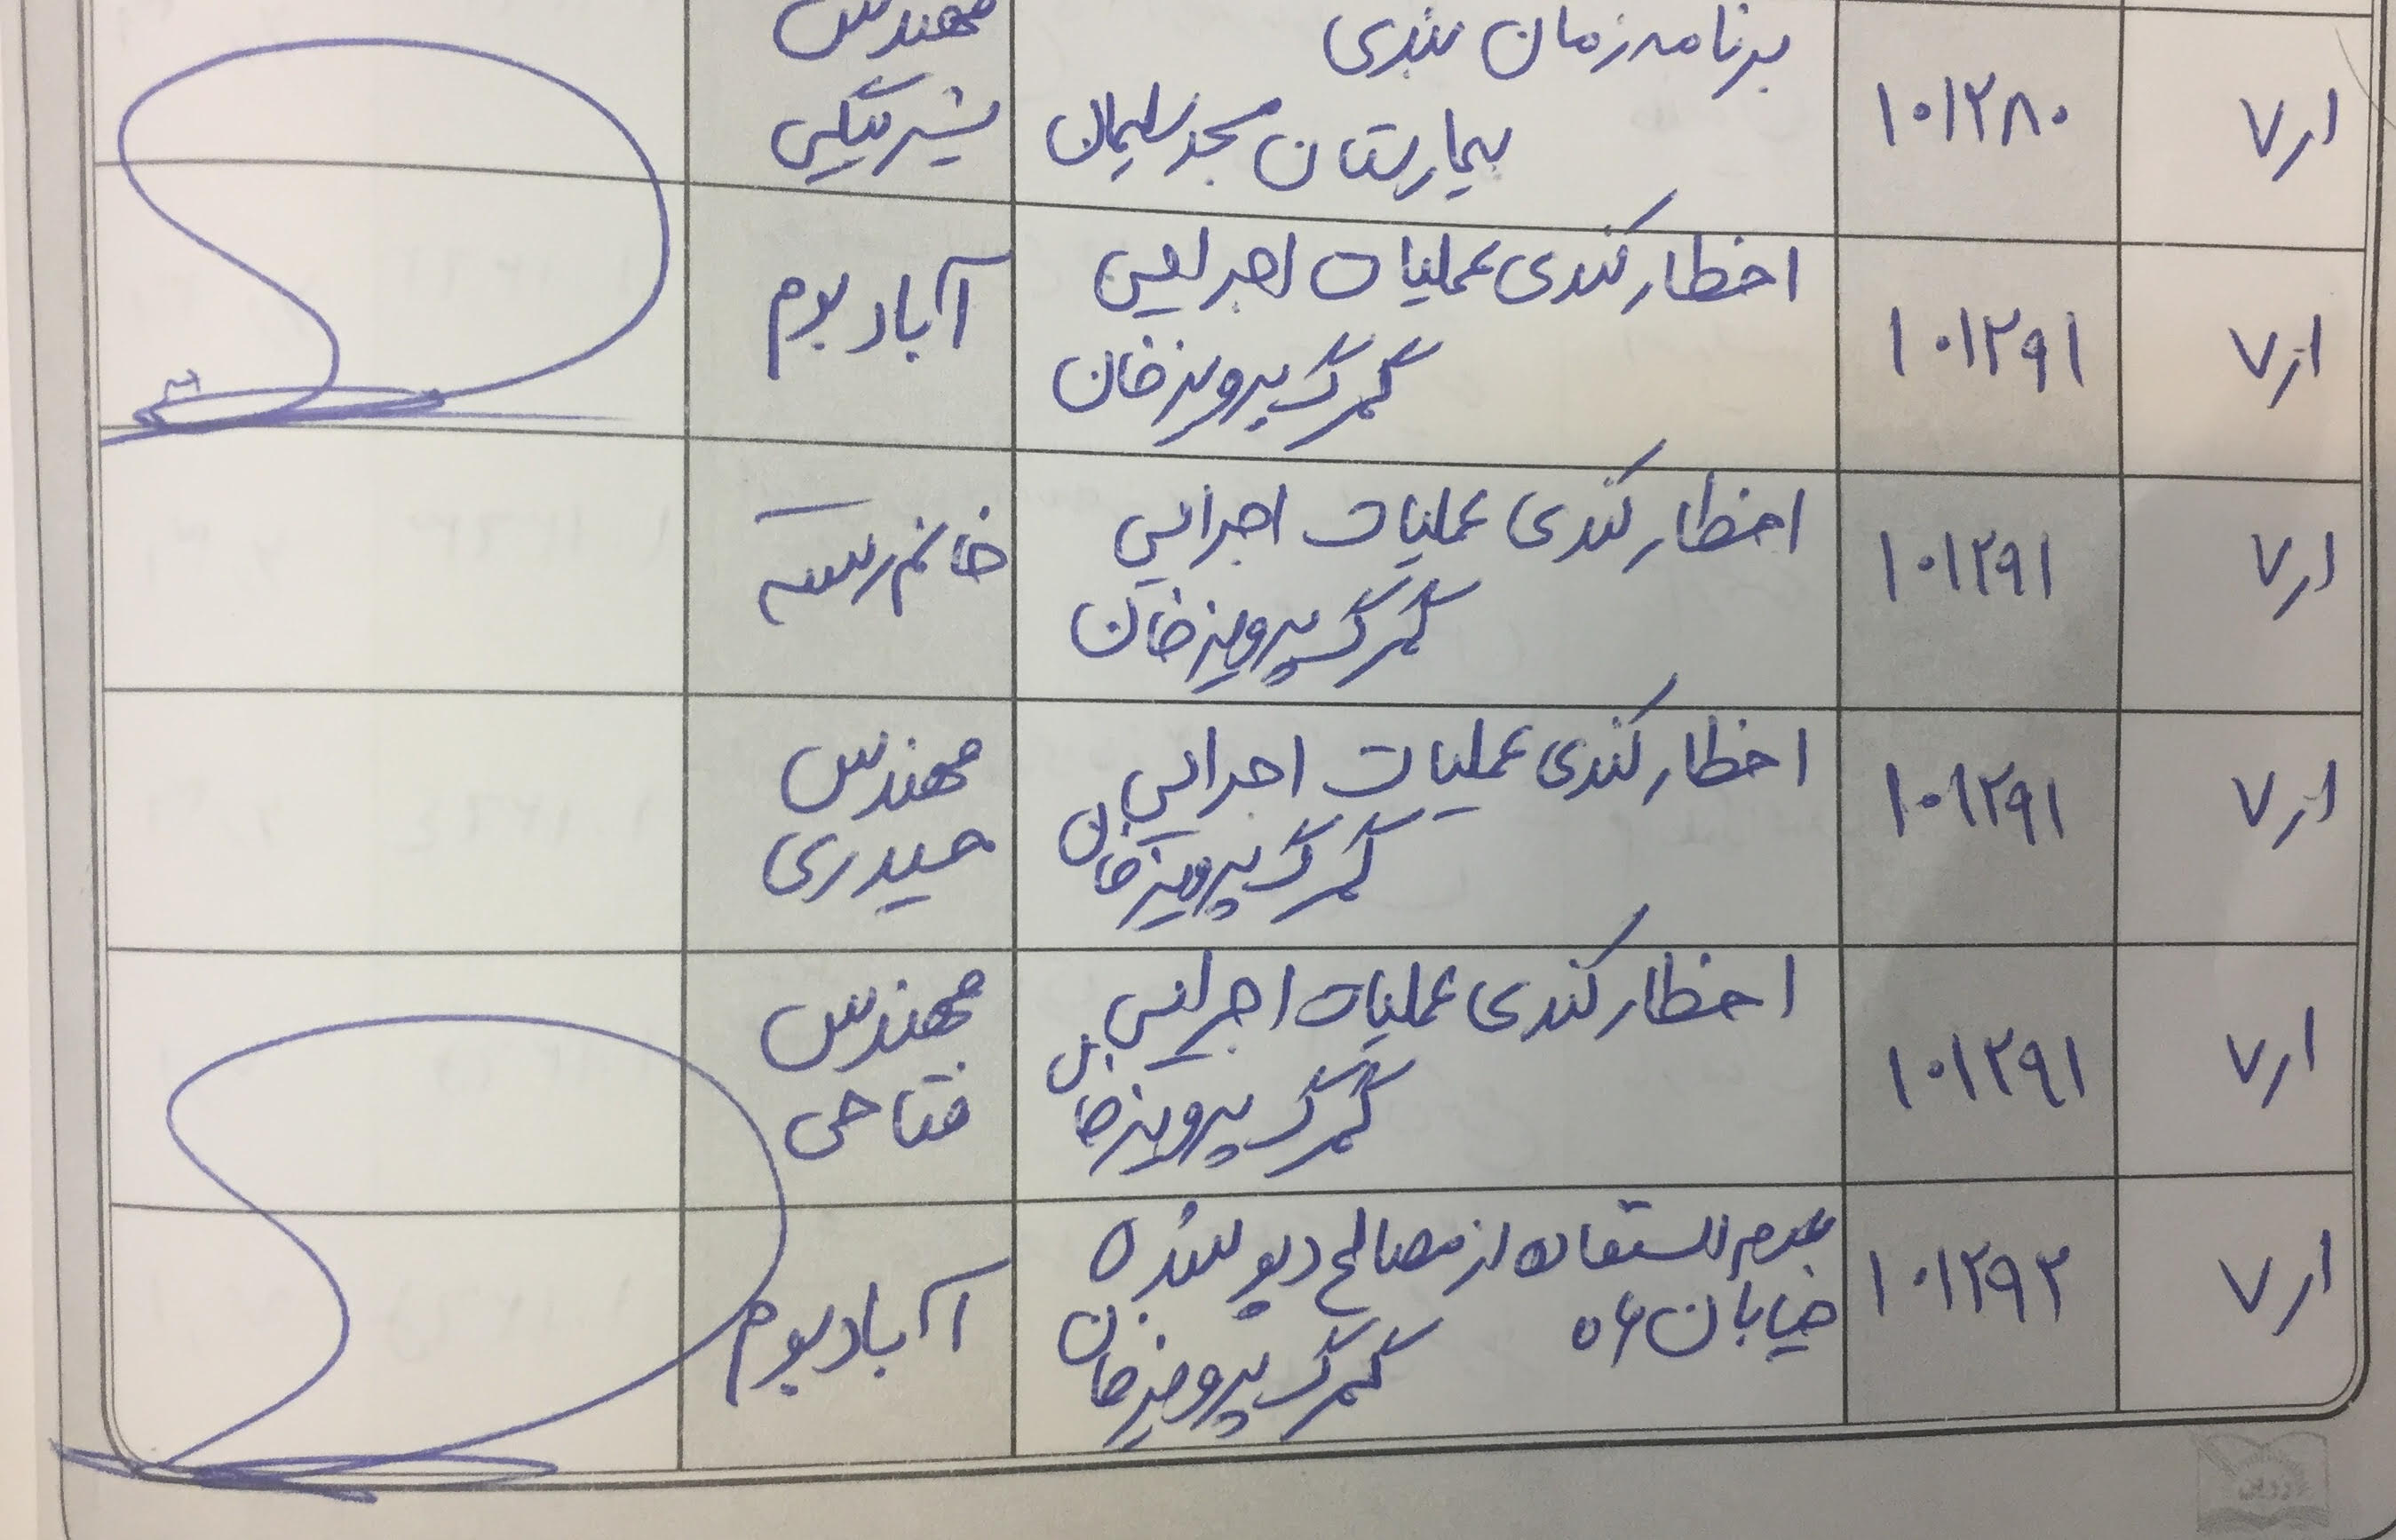 ۷٫۱
۱۰۱۲۸۰
برنامه زمان بندی
بیمارستان مسجد سلیمان
مهندس
۷٫۱
۱۰۱۲۹۱
اخطار کندی عملیات اجرایی
گمرگ پرویزخان
آباد بوم
۷٫۱
۱۰۱۲۹۱
اخطار کندی عملیات اجرایی
گمرگ پرویزخان
خانم
۷٫۱
۱۰۱۲۹۱
اخطار کندی عملیات اجرایی
گمرگ پرویزخان
مهندس
حیدری
۷٫۱
۱۰۱۲۹۱
اخطار کندی عملیات اجرایی
گمرگ پرویزخان
مهندس
فتاحی
۷٫۱
۱۰۱۲۹۳
عدم استفاده از مصالح دپو شده
خیابان ۰۶
گمرگ پرویزخان
آباد بوم